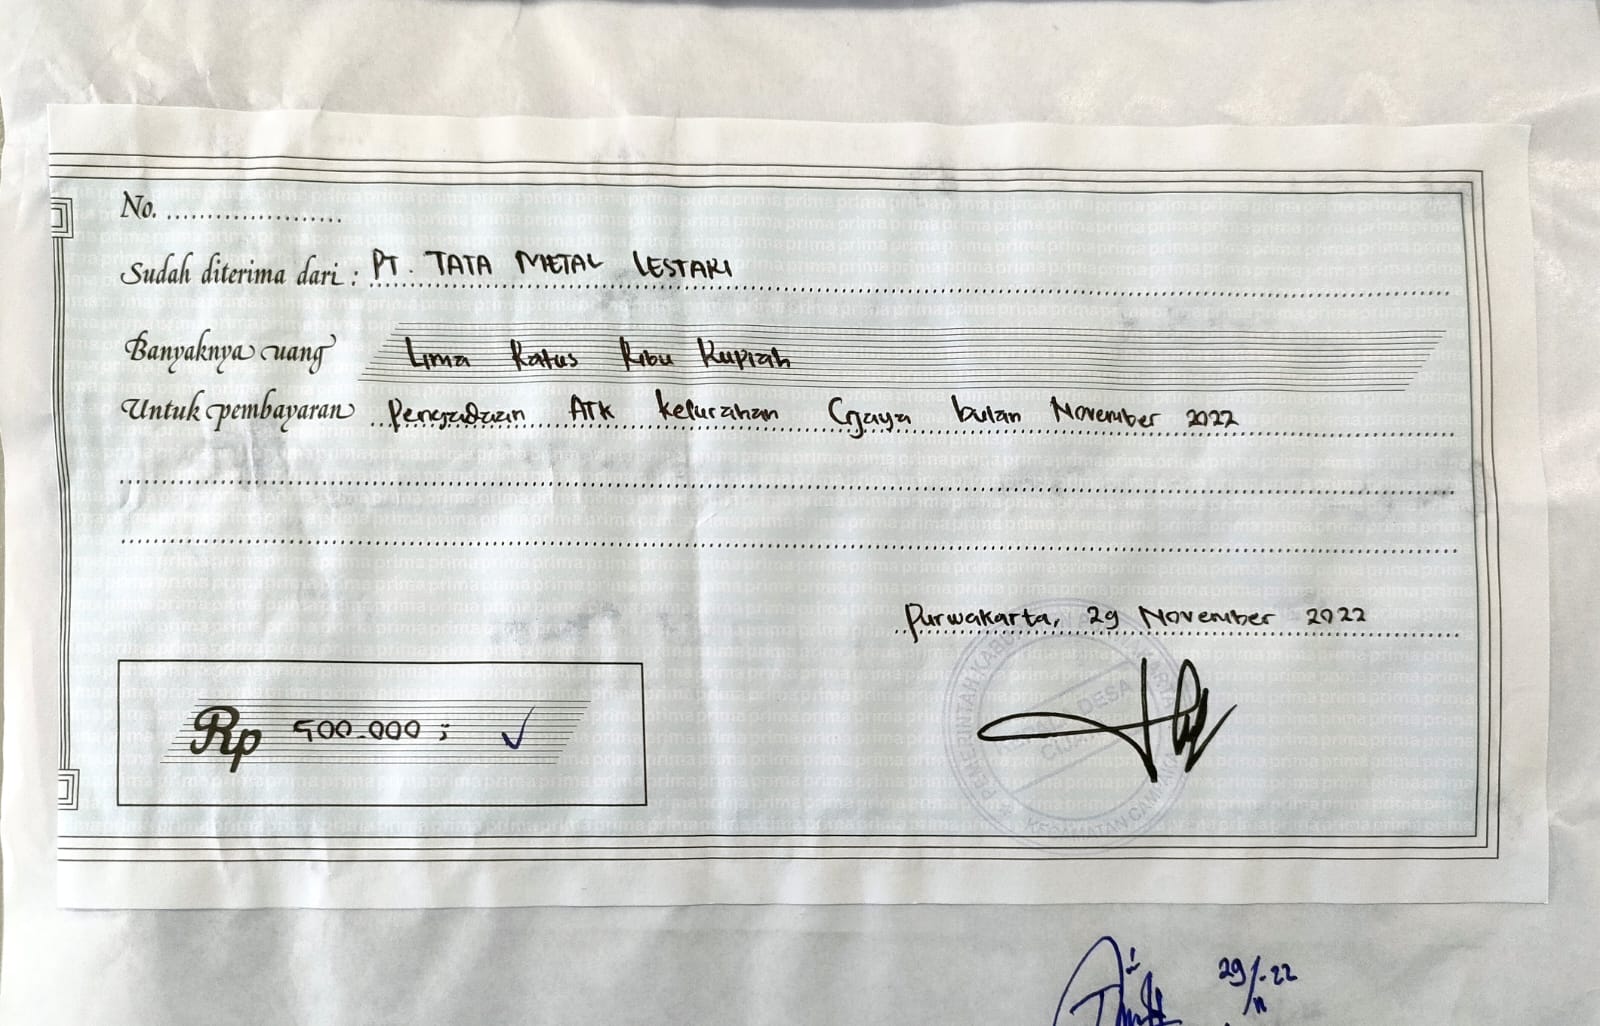 No. ......................
Sudah diterima dari : PT. TATA METAL LESTARI
Banyaknya uang Lima Ratus Ribu Rupiah
Untuk pembayaran Pengadaan ATK kelurahan Cijaya bulan November 2022
Purwakarta, 29 November 2022
Rp 500.000 ;
PEMERINTAH KAB
KEPALA DESA
KECAMATAN CAMPAKA
29/11-22